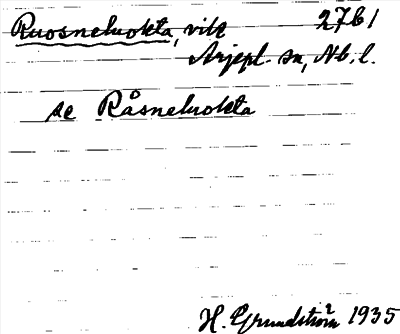 Ruosneluokta, vik 2761
Arjepl. sn, Nb. l.
se Råsneluokta
H. Grundström 1935